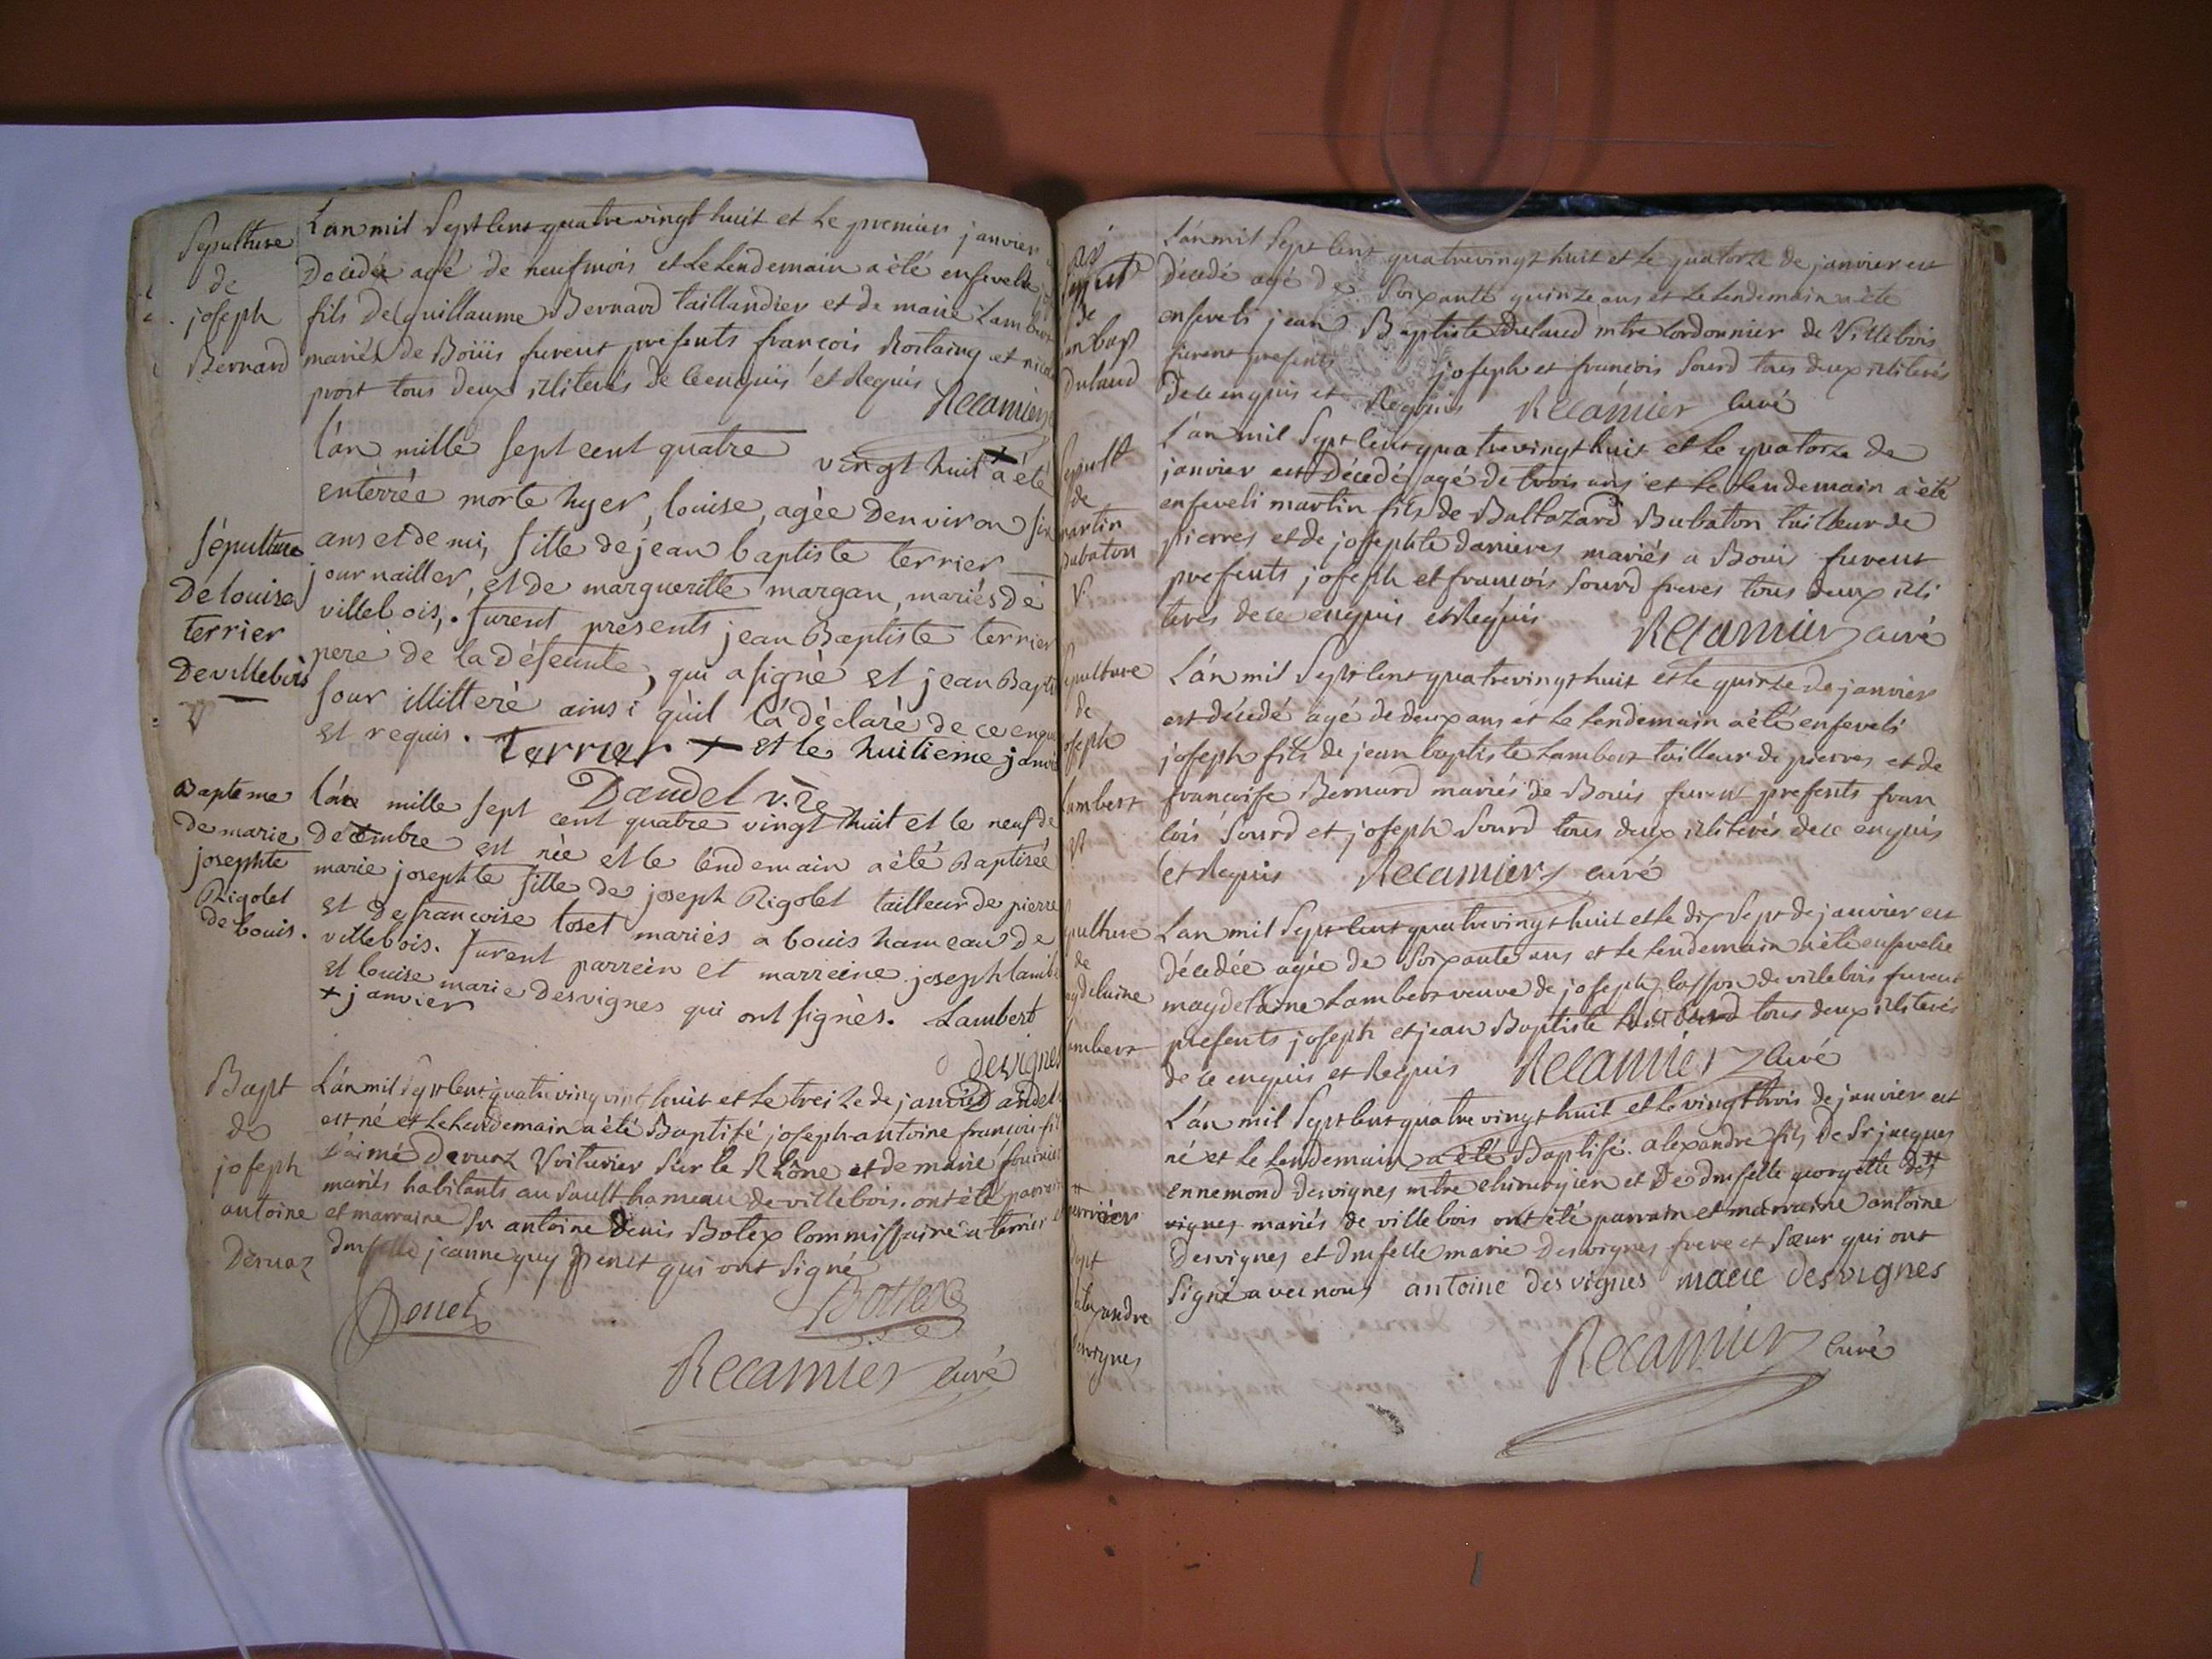 Sepulture
de
joseph
Bernard
L'an mil Sept Cent quatre vingt huit et Le premier janvier
Decedé agé de neuf mois et Le Lendemain a été enseveli
fils de guillaume Bernard taillandier et de marie Lambert
mariés de Boüis furent presents françois Rostaing et
prost tous deux illiterés de ce enquis et Requis Recamier
Sépulture
De louise
terrier
De villebois
l'an mille sept cent quatre vingt huit + a été
enterrée morte hyer, louise, agée d'environ six
ans et demi, fille de jean baptiste terrier
journailler, et de margueritte margan, mariés de
villebois,. furent présents jean Baptiste terrier
pere de la défunte, qui a signé et jean Bapti
sour illitteré ainsi qu'il l'a déclaré de ce enquis
et requis. terrier + et le huitieme janvi
Dandel v.re
Baptême
de marie
josephte
Rigolet
de bouis.
l'an mille sept cent quatre vingt huit et le neuf de
decembre est née et le lendemain a été Baptisée
marie josephte fille de joseph Rigolet tailleur de pierre
et de francoise toset mariés a bouis hameau de
villebois. furent parrein et marreine joseph lamb
et louise marie Desvignes qui ont signés. Lambert
+ janvier
desvignes
Dandel
Bapt
de
joseph
antoine
Deruaz
L'an mil Sept Cent quatre vingt huit et Le treize de janvier
est né et Le Lendemain a été Baptisé joseph antoine francois fil
d'aimé Deruaz Voiturier Sur le Rhône et de marie fournier
mariés habitants au Sault hameau de villebois. ont été parrain
et marraine Sr antoine Denis Botex Commissaire a terrier et
dmselle jeanne guy penet qui ont Signé
Penet Bottex
Recamier Curé
Sepult
de
jean bap
Dulaud
L'an mil Sept Cent quatre vingt huit et Le quatorze de janvier est
décedé agé de Soixante quinze ans et Le Lendemain a été
enseveli jean Baptiste Dulaud mtre Cordonnier de Villebois
furent presents joseph et françois Sourd tous deux illiterés
de ce enquis et Requis Recamier Curé
Sepult
de
martin
Bubaton
V
L'an mil Sept Cent quatre vingt huit et Le quatorze de
janvier est Décedé agé de trois ans et Le Lendemain a été
enseveli martin fils de Baltazard Bubaton tailleur de
pierres et de josephte danieres mariés a Bouis furent
presents joseph et francois Sourd freres tous deux illi
terés de ce enquis et Requis Recamier curé
Sepulture
de
joseph
Lambert
V
L'an mil Sept Cent quatre vingt huit et le quinze de janvier
est décedé agé de deux ans et Le Lendemain a été enseveli
joseph fils de jean baptiste Lambert tailleur de pierres et de
francoise Bernard mariés de Bouis furent presents fran
cois Sourd et joseph Sourd tous deux illiterés de ce enquis
et Requis Recamier curé
Sepulture
de
magdelaine
Lambert
L'an mil Sept Cent quatre vingt huit et le dix Sept de janvier est
décedée agée de Soixante ans et Le Lendemain a été ensevelie
magdelaine Lambert veuve de joseph Casson de villebois furent
presents joseph et jean Baptiste tous deux illiterés
de ce enquis et Requis Recamier Curé
Bapt
alexandre
desvignes
L'an mil Sept Cent quatre vingt huit et Le vingt trois de janvier est
né et Le Lendemain a été Baptisé. alexandre fils De Sr jacques
ennemond desvignes mtre chirurgien et De dmselle georgette des
vignes mariés de villebois ont été parrain et marraine antoine
Desvignes et dmselle marie Desvignes frere et Sœur qui ont
Signé avec nous antoine desvignes marie desvignes
Recamier Curé